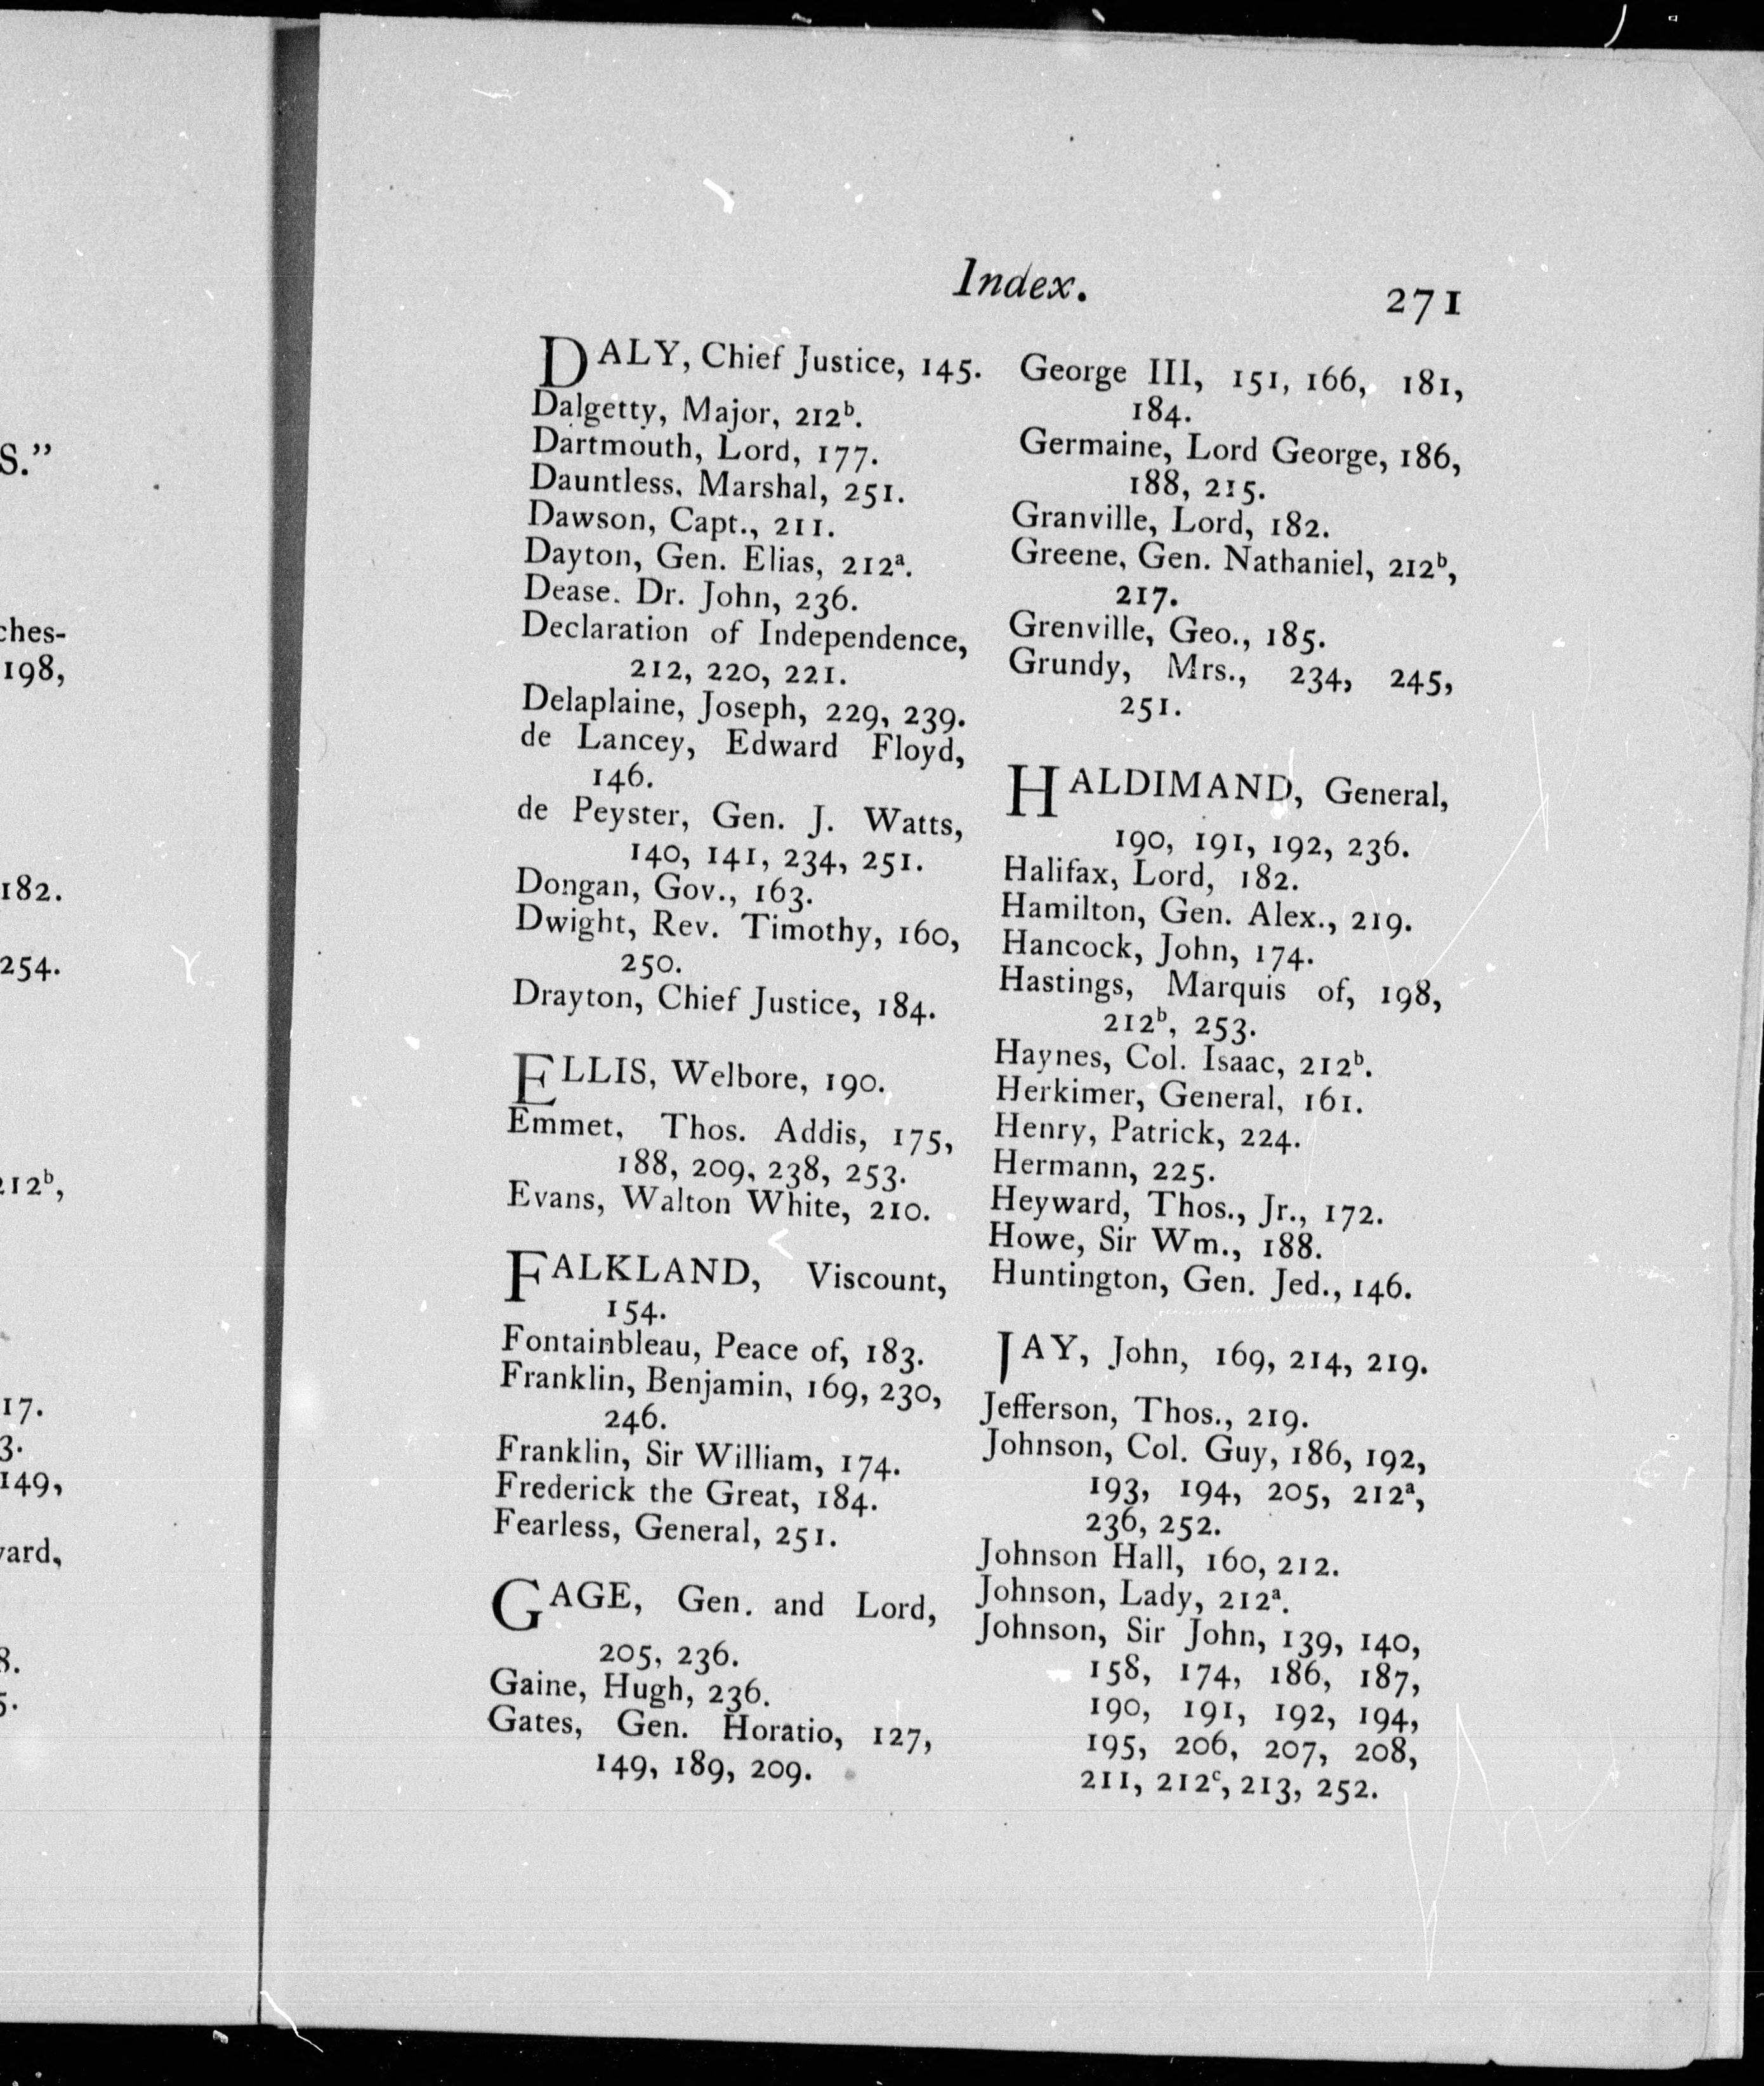 S."
ches-
198,
182.
254.
212ᵇ,
17.
3.
149,
vard,
8.
5.
Index.
271
DALY, Chief Justice, 145.
Dalgetty, Major, 212ᵇ.
Dartmouth, Lord, 177.
Dauntless, Marshal, 251.
Dawson, Capt., 211.
Dayton, Gen. Elias, 212ᵃ.
Dease. Dr. John, 236.
Declaration of Independence,
212, 220, 221.
Delaplaine, Joseph, 229, 239.
de Lancey, Edward Floyd,
146.
de Peyster, Gen. J. Watts,
140, 141, 234, 251.
Dongan, Gov., 163.
Dwight, Rev. Timothy, 160,
250.
Drayton, Chief Justice, 184.
ELLIS, Welbore, 190.
Emmet, Thos. Addis, 175,
188, 209, 238, 253.
Evans, Walton White, 210.
FALKLAND, Viscount,
154.
Fontainbleau, Peace of, 183.
Franklin, Benjamin, 169, 230,
246.
Franklin, Sir William, 174.
Frederick the Great, 184.
Fearless, General, 251.
GAGE, Gen. and Lord,
205, 236.
Gaine, Hugh, 236.
Gates, Gen. Horatio, 127,
149, 189, 209.
George III, 151, 166, 181,
184.
Germaine, Lord George, 186,
188, 215.
Granville, Lord, 182.
Greene, Gen. Nathaniel, 212ᵇ,
217.
Grenville, Geo., 185.
Grundy, Mrs., 234, 245,
251.
HALDIMAND, General,
190, 191, 192, 236.
Halifax, Lord, 182.
Hamilton, Gen. Alex., 219.
Hancock, John, 174.
Hastings, Marquis of, 198,
212ᵇ, 253.
Haynes, Col. Isaac, 212ᵇ.
Herkimer, General, 161.
Henry, Patrick, 224.
Hermann, 225.
Heyward, Thos., Jr., 172.
Howe, Sir Wm., 188.
Huntington, Gen. Jed., 146.
JAY, John, 169, 214, 219.
Jefferson, Thos., 219.
Johnson, Col. Guy, 186, 192,
193, 194, 205, 212ᵃ,
236, 252.
Johnson Hall, 160, 212.
Johnson, Lady, 212ᵃ.
Johnson, Sir John, 139, 140,
158, 174, 186, 187,
190, 191, 192, 194,
195, 206, 207, 208,
211, 212ᶜ, 213, 252.